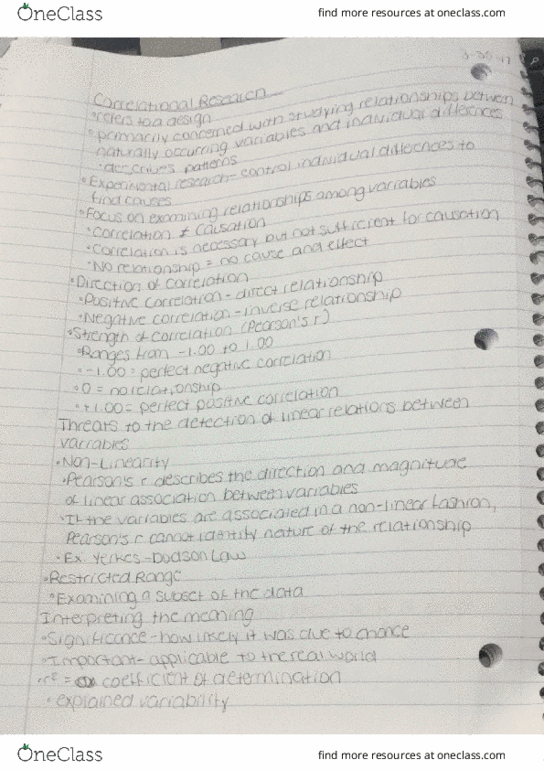 OneClass
find more resources at oneclass.com
3-20-17
Correlational Research
•refers to a design
•primarily concerned with studying relationships between
naturally occurring variables and individual differences
•describes patterns
•Experimental research-control individual differences to
find causes
•Focus on examining relationships among variables
•correlation ≠ causation
•correlation is necessary but not sufficient for causation
•No relationship = no cause and effect
•Direction of correlation
•Positive correlation-direct relationship
•Negative correlation-inverse relationship
•Strength of correlation (Pearson's r)
•Ranges from -1.00 to 1.00
•-1.00= perfect negative correlation
•0 = no relationship
•+1.00= perfect positive correlation
Threats to the detection of linear relations between
variables
•Non-Linearity
•Pearson's r describes the direction and magnitude
of linear association between variables
•If the variables are associated in a non-linear fashion,
Pearson's r cannot identify nature of the relationship
•Ex. Yerkes-Dodson Law
•Restricted Range
•Examining a subset of the data
Interpreting the meaning
•Significance-how likely it was due to chance
•Important-applicable to the real world
•r² = coefficient of determination
•explained variability
OneClass
find more resources at oneclass.com